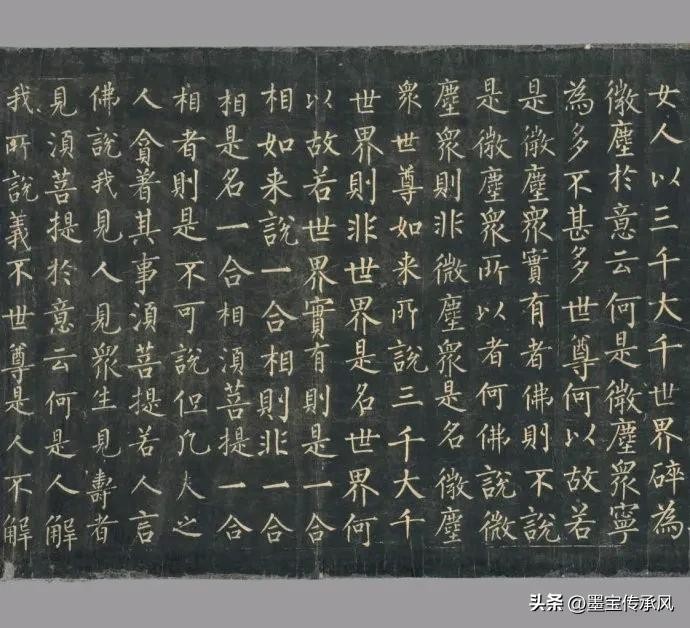 女人以三千大千世界碎為
微塵於意云何是微塵眾寧
為多不甚多世尊何以故若
是微塵眾實有者佛則不說
是微塵眾所以者何佛說微
塵眾則非微塵眾是名微塵
眾世尊如来所說三千大千
世界則非世界是名世界何
以故若世界實有則是一合
相如来說一合相則非一合
相是名一合相須菩提一合
相者則是不可說但凡夫之
人貪着其事須菩提若人言
佛說我見人見眾生見壽者
見須菩提於意云何是人解
我所說義不世尊是人不解
头条 @墨宝传承风